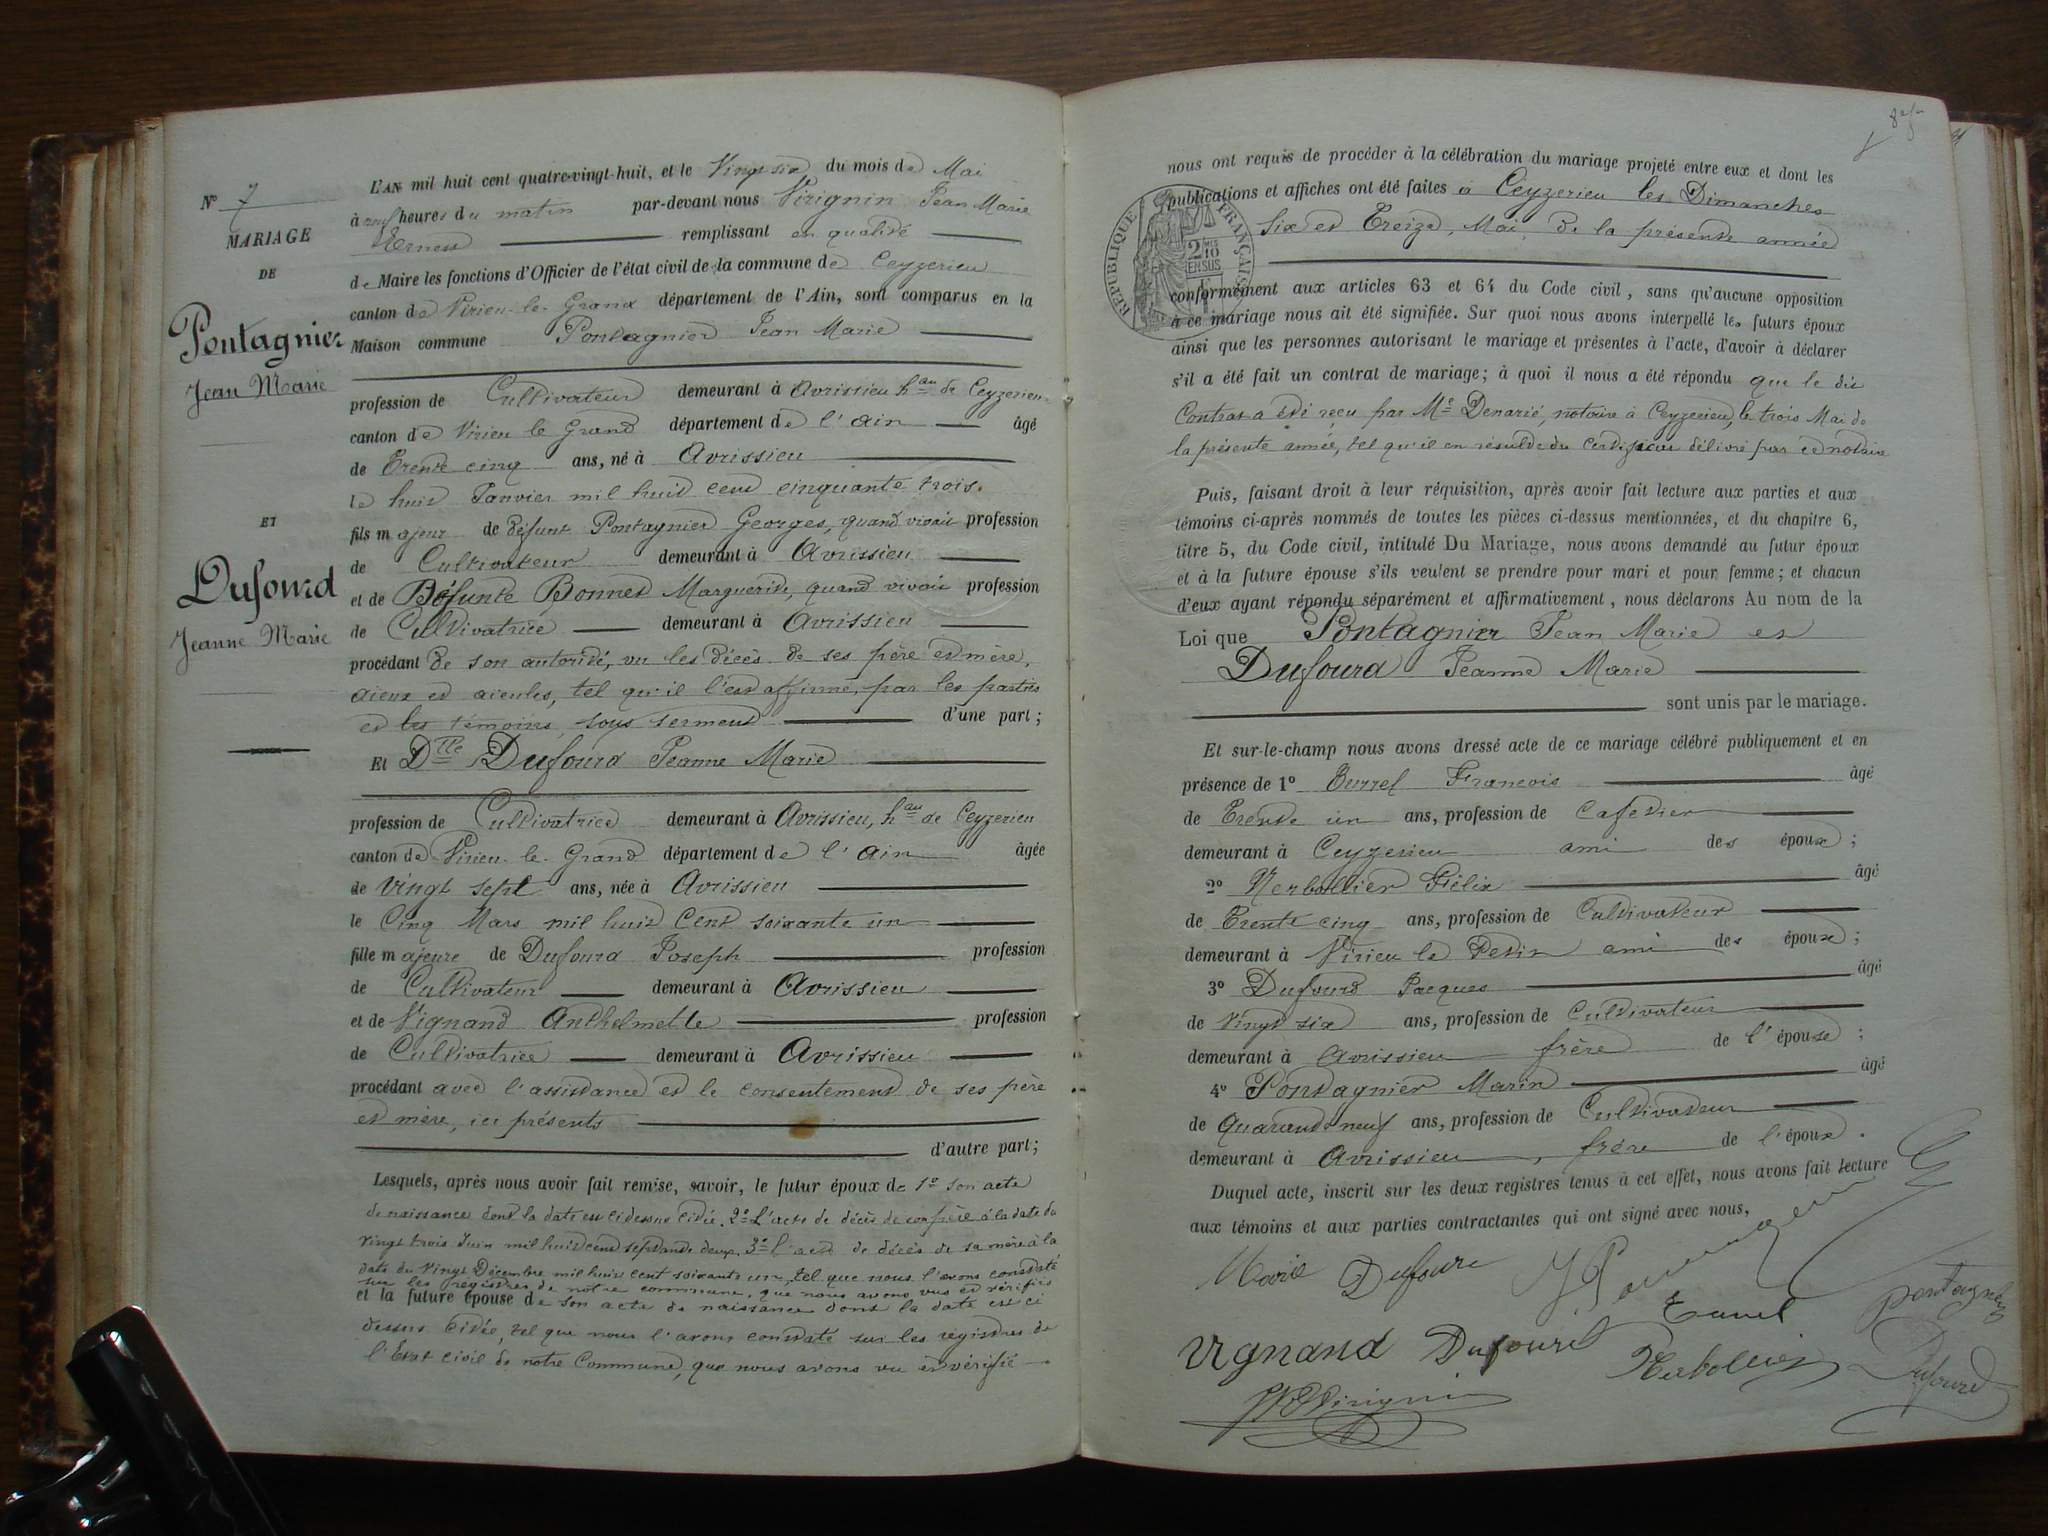 N° 7
MARIAGE
DE
Pontagnier
Jean Marie
ET
Dufourd
Jeanne Marie
L'AN mil huit cent quatre-vingt-huit, et le Vingt six du mois de Mai
à neuf heures du matin par-devant nous Virignin Jean Marie
Ernest remplissant en qualité
de Maire les fonctions d'Officier de l'état civil de la commune de Ceyzerieu
canton de Virieu-le-Grand département de l'Ain, sont comparus en la
Maison commune Pontagnier Jean Marie
profession de Cultivateur demeurant à Avrissieu hau de Ceyzerieu
canton de Virieu le Grand département de l'ain âgé
de Trente cinq ans, né à Avrissieu
le huit Janvier mil huit cent cinquante trois.
fils majeur de défunt Pontagnier Georges, quand vivait profession
de Cultivateur demeurant à Avrissieu
et de Défunte Bonnet Marguerite, quand vivait profession
de Cultivatrice demeurant à Avrissieu
procédant de son autorité, vu les décès de ses père et mère,
aieux et aieules, tel qu'il l'est affirmé, par les parties
et les témoins, sous serment d'une part;
Et Dlle Dufourd Jeanne Marie
profession de Cultivatrice demeurant à Avrissieu, hau de Ceyzerieu
canton de Virieu-le-Grand département de l'ain âgée
de vingt sept ans, née à Avrissieu
le Cinq Mars mil huit Cent soixante un
fille majeure de Dufourd Joseph profession
de Cultivateur demeurant à Avrissieu
et de Vignand Anthelmette profession
de Cultivatrice demeurant à Avrissieu
procédant avec l'assistance et le consentement de ses père
et mère, ici présents
d'autre part;
Lesquels, après nous avoir fait remise, savoir, le futur époux de 1° son acte
de naissance dont la date est ci dessus citée. 2° L'acte de décès de son père à la date du
vingt trois Juin mil huit cent septante deux. 3° l'acte de décès de sa mère à la
date du Vingt Décembre mil huit cent soixante une, tel que nous l'avons constaté
sur les registres de notre commune, que nous avons vus et vérifiés
et la future épouse de son acte de naissance dont la date est ci
dessus Citée, tel que nous l'avons constaté sur les registres de
l'Etat civil de notre Commune, que nous avons vu et vérifié
nous ont requis de procéder à la célébration du mariage projeté entre eux et dont les
publications et affiches ont été faites à Ceyzerieu les Dimanches
Six et Treize, Mai, de la présente année
RÉPUBLIQUE FRANÇAISE
2 DMES 10
EN SUS
conformément aux articles 63 et 64 du Code civil, sans qu'aucune opposition
à ce mariage nous ait été signifiée. Sur quoi nous avons interpellé les futurs époux
ainsi que les personnes autorisant le mariage et présentes à l'acte, d'avoir à déclarer
s'il a été fait un contrat de mariage; à quoi il nous a été répondu que le dit
Contrat a été reçu par Me Denarié, notaire à Ceyzerieu, le trois Mai de
la présente année, tel qu'il en résulte du Certificat délivré par ce notaire
Puis, faisant droit à leur réquisition, après avoir fait lecture aux parties et aux
témoins ci-après nommés de toutes les pièces ci-dessus mentionnées, et du chapitre 6,
titre 5, du Code civil, intitulé Du Mariage, nous avons demandé au futur époux
et à la future épouse s'ils veulent se prendre pour mari et pour femme; et chacun
d'eux ayant répondu séparément et affirmativement, nous déclarons Au nom de la
Loi que Pontagnier Jean Marie et
Dufourd Jeanne Marie
sont unis par le mariage.
Et sur-le-champ nous avons dressé acte de ce mariage célébré publiquement et en
présence de 1° Burrel Francois âgé
de Trente un ans, profession de Cafetier
demeurant à Ceyzerieu ami des époux;
2° Nerbollier Félix âgé
de Trente cinq ans, profession de Cultivateur
demeurant à Virieu le Petit ami des époux;
3° Dufourd Jacques âgé
de Vingt six ans, profession de Cultivateur
demeurant à Avrissieu frère de l'épouse;
4° Pontagnier Marin âgé
de Quarante neuf ans, profession de Cultivateur
demeurant à Avrissieu, frère de l'époux.
Duquel acte, inscrit sur les deux registres tenus à cet effet, nous avons fait lecture
aux témoins et aux parties contractantes qui ont signé avec nous,
Marie Dufour
pontagnier
Vignand Dufourd Nerbollier Dufourd
Virignin